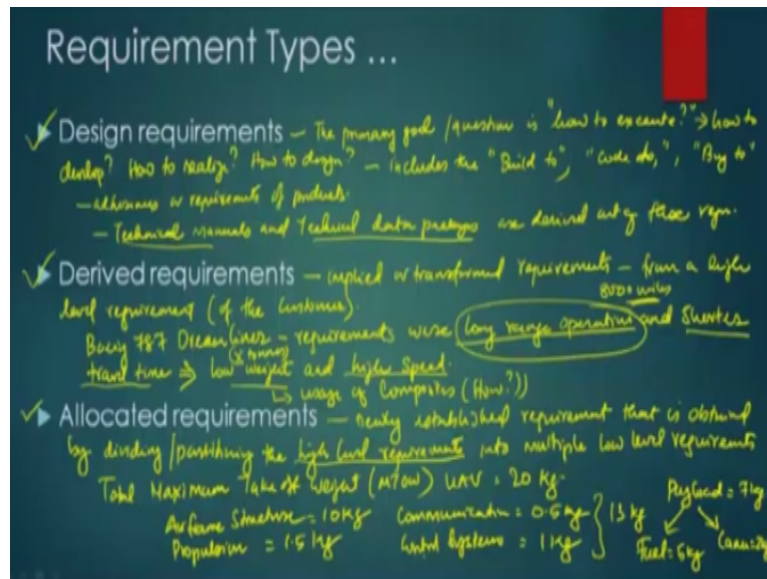 Requirement Types ...
Design requirements – The primary goal / question is "how to execute?" → how to
develop? How to realize? How to design? – includes the "Build to", "Code to,", "Buy to"
– adherence or requirements of products.
– Technical Manuals and Technical data packages are derived out of these reqn.
Derived requirements – implied or transformed requirements – from a high
level requirement (of the Customer). 8500 miles
Boeing 787 Dreamliner – requirements were long range operation and Shorter
travel time ⇒ low weight and high speed.
↳ usage of Composites (How?)
Allocated requirements – newly established requirement that is obtained
by dividing / partitioning the high level requirements into multiple low level requirements
Total Maximum Take off weight (MTOW) UAV = 20 kg.
Airframe Structure = 10 kg Communication = 0.5 kg } 13 kg Payload = 7 kg
Propulsion = 1.5 kg Control Systems = 1 kg Fuel = 5 kg